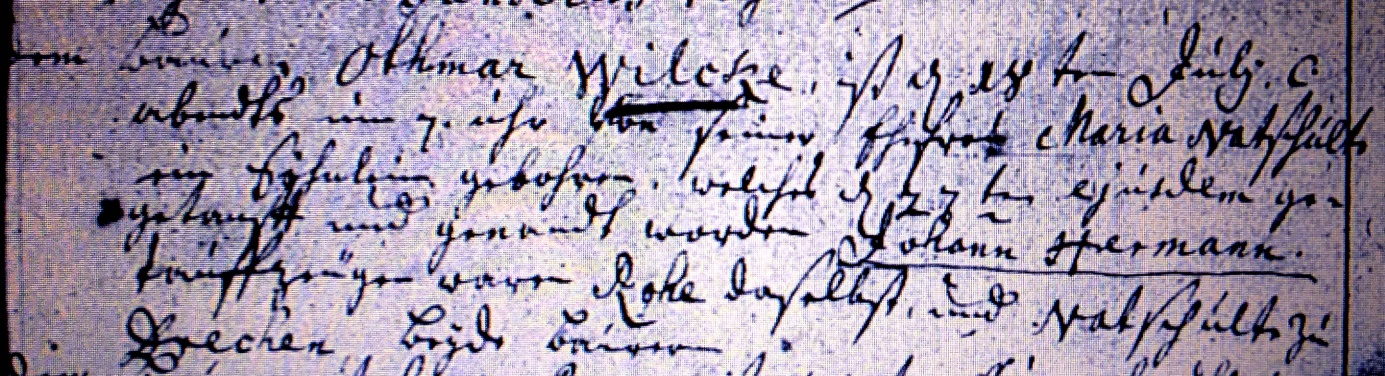 dem Bauren Othmar Wilcke, ist d 18 ten Julij. c
abendts um 7. uhr von seiner Ehefrau Maria Natschülte
ein Söhnlein gebohren, welches d 22 ten ejusdem ge-
getaufft und genandt worden Johann Hermann.
tauffzeugen waren Rohe daselbst, und Natschülte zu
Brechen beyde bauren